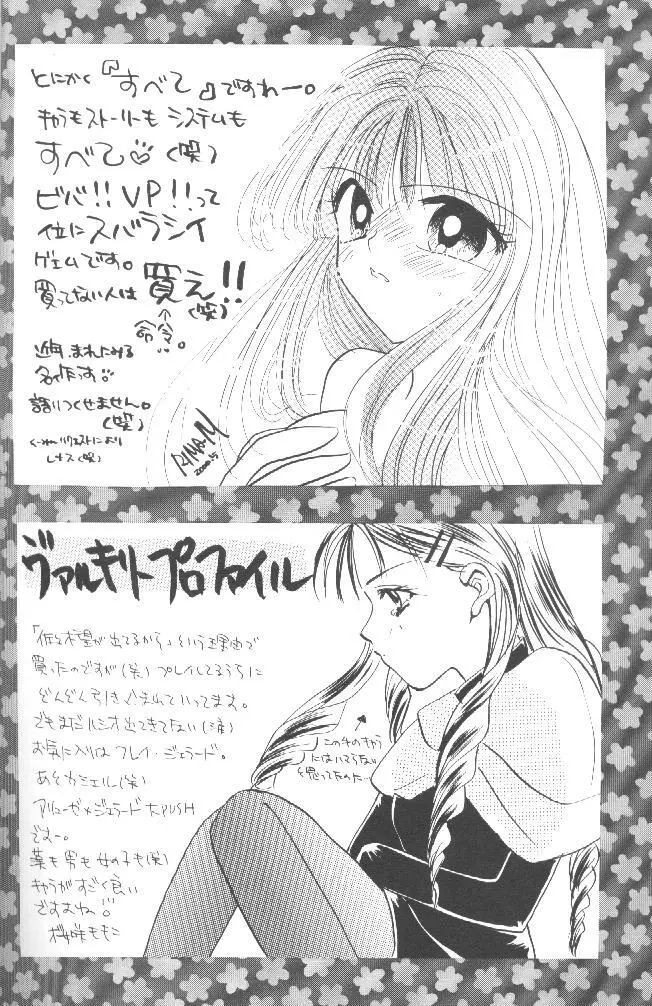 とにかく『すべて』ですわー。
キャラもストーリーも システムも
すべて♡(笑)
ビバ!!VP!!って
位にスバラシイ
ゲェムです。
買ってない人は買え!!(笑)
↑
命令!!。
近年まれにみる
名作っす
語りつくせません。
(笑)
レナス(笑)
RINA・M
2000.5
ヴァルキリープロファイル
「佐々木望が出てるから」という理由で
買ったのですが(笑)プレイしてるうちに
ぞんぞん引きこまれていってます。
でもまだルシオ出てきてない(涙)
お気に入りはフレイ・ジェラード。
あとカシェル(笑)
アリューゼ×ジェラード大PUSH
ですー。
男も女の子も(笑)
キャラがすごく良い
ですよね
桜咲ももこ
この手のキャラ